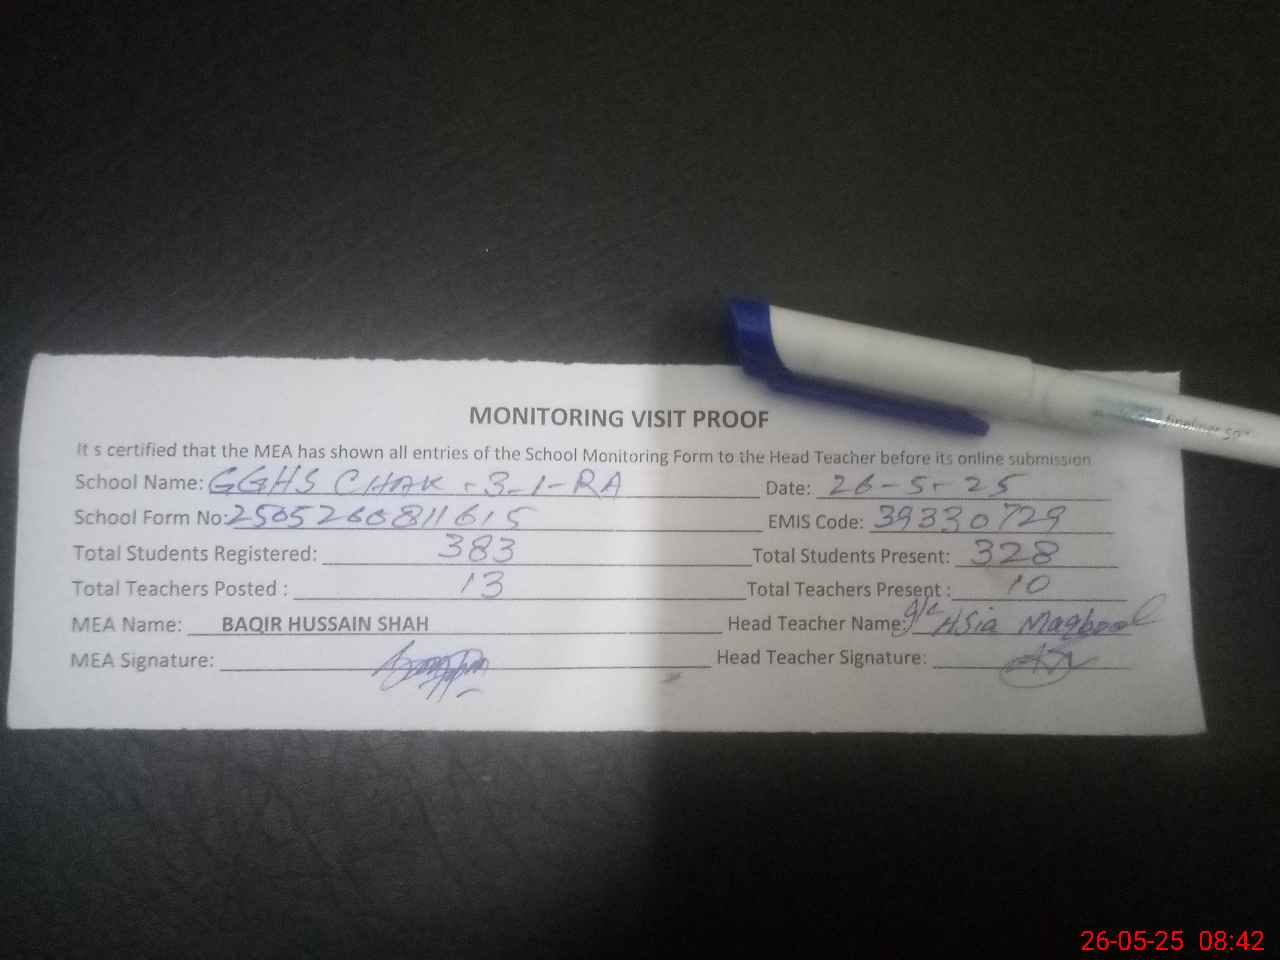 MONITORING VISIT PROOF
It s certified that the MEA has shown all entries of the School Monitoring Form to the Head Teacher before its online submission.
School Name: GGHS CHAK - 3-1-RA Date: 26-5-25
School Form No: 2505260811615 EMIS Code: 39330729
Total Students Registered: 383 Total Students Present: 328
Total Teachers Posted : 13 Total Teachers Present : 10
MEA Name: BAQIR HUSSAIN SHAH Head Teacher Name: Maqbool
MEA Signature: Head Teacher Signature:
26-05-25 08:42